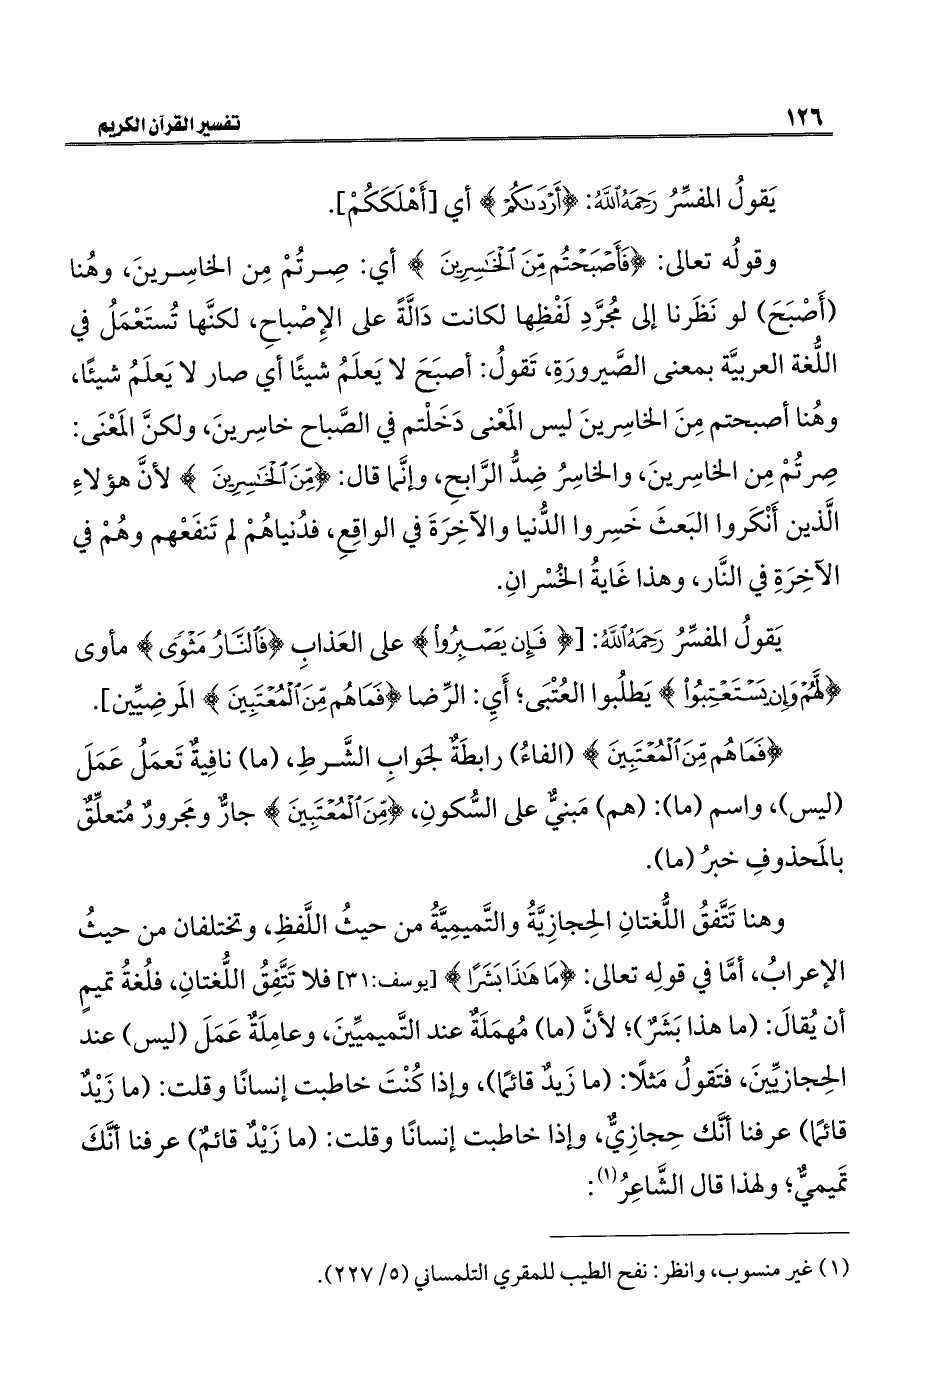 ١٢٦
تفسير القرآن الكريم
يَقولُ المفسِّرُ رَحِمَهُ ٱللَّهُ: ﴿أَرۡدَىٰكُمۡ﴾ أي [أَهْلَكَكُمْ].
وقولُه تعالى: ﴿فَأَصۡبَحۡتُم مِّنَ ٱلۡخَٰسِرِينَ ﴾ أي: صِرتُمْ مِن الخاسِرينَ، وهُنا
(أَصْبَحَ) لو نَظَرنا إلى مُجرَّدِ لَفْظِها لكانت دَالَّةً على الإِصْباحِ، لكنَّها تُستَعْمَلُ في
اللُّغة العربيَّة بمعنى الصَّيرورَةِ، تَقولُ: أصبَحَ لا يَعلَمُ شيئًا أي صار لا يَعلَمُ شيئًا،
وهُنا أصبحتم مِنَ الخاسِرينَ ليس المَعْنى دَخَلْتم في الصَّباح خاسِرينَ، ولكنَّ المَعْنَى:
صِرتُمْ مِن الخاسِرينَ، والخاسِرُ ضِدُّ الرَّابحِ، وإنَّما قال: ﴿مِّنَ ٱلۡخَٰسِرِينَ ﴾ لأنَّ هؤلاءِ
الَّذين أَنْكَروا البَعثَ خَسِروا الدُّنيا والآخِرَةَ في الواقِعِ، فدُنياهُمْ لم تَنفَعْهم وهُمْ في
الآخِرَةِ في النَّار، وهذا غَايةُ الخُسْرانِ.
يَقولُ المفسِّرُ رَحِمَهُ ٱللَّهُ: [﴿ فَإِن يَصۡبِرُواْ﴾ على العَذابِ ﴿فَٱلنَّارُ مَثۡوٗى﴾ مأوى
﴿لَّهُمۡ وَإِن يَسۡتَعۡتِبُواْ ﴾ يَطلُبوا العُتْبَى؛ أَيِ: الرِّضا ﴿فَمَا هُم مِّنَ ٱلۡمُعۡتَبِينَ ﴾ المَرضِيِّين].
﴿فَمَا هُم مِّنَ ٱلۡمُعۡتَبِينَ ﴾ (الفاءُ) رابطَةٌ لجوابِ الشَّرطِ، (ما) نافِيةٌ تَعمَلُ عَمَلَ
(ليس)، واسم (ما): (هم) مَبنيٌّ على السُّكونِ، ﴿مِّنَ ٱلۡمُعۡتَبِينَ ﴾ جارٌّ ومَجرورٌ مُتعلِّقٌ
بالمَحذوفِ خبرُ (ما).
وهنا تَتَّفقُ اللُّغتانِ الحِجازِيَّةُ والتَّميمِيَّةُ من حيثُ اللَّفظِ، وتختلفان من حيثُ
الإعرابُ، أمَّا في قولِه تعالى: ﴿مَا هَٰذَا بَشَرًا ﴾ [يوسف:٣١] فلا تَتَّفِقُ اللُّغتانِ، فلُغةُ تميمٍ
أن يُقالَ: (ما هذا بَشَرٌ)؛ لأنَّ (ما) مُهمَلَةٌ عند التَّميميِّينَ، وعامِلَةٌ عَمَلَ (ليس) عند
الحِجازيِّينَ، فتَقولُ مَثلًا: (ما زَيدٌ قائمًا)، وإذا كُنْتَ خاطبت إنسانًا وقلت: (ما زَيْدٌ
قائمًا) عرفنا أنَّك حِجازِيٌّ، وإذا خاطبت إنسانًا وقلت: (ما زَيْدٌ قائمٌ) عرفنا أنَّكَ
تَميميٌّ؛ ولهذا قال الشَّاعِرُ(١):
(١) غير منسوب، وانظر: نفح الطيب للمقري التلمساني (٥/ ٢٢٧).